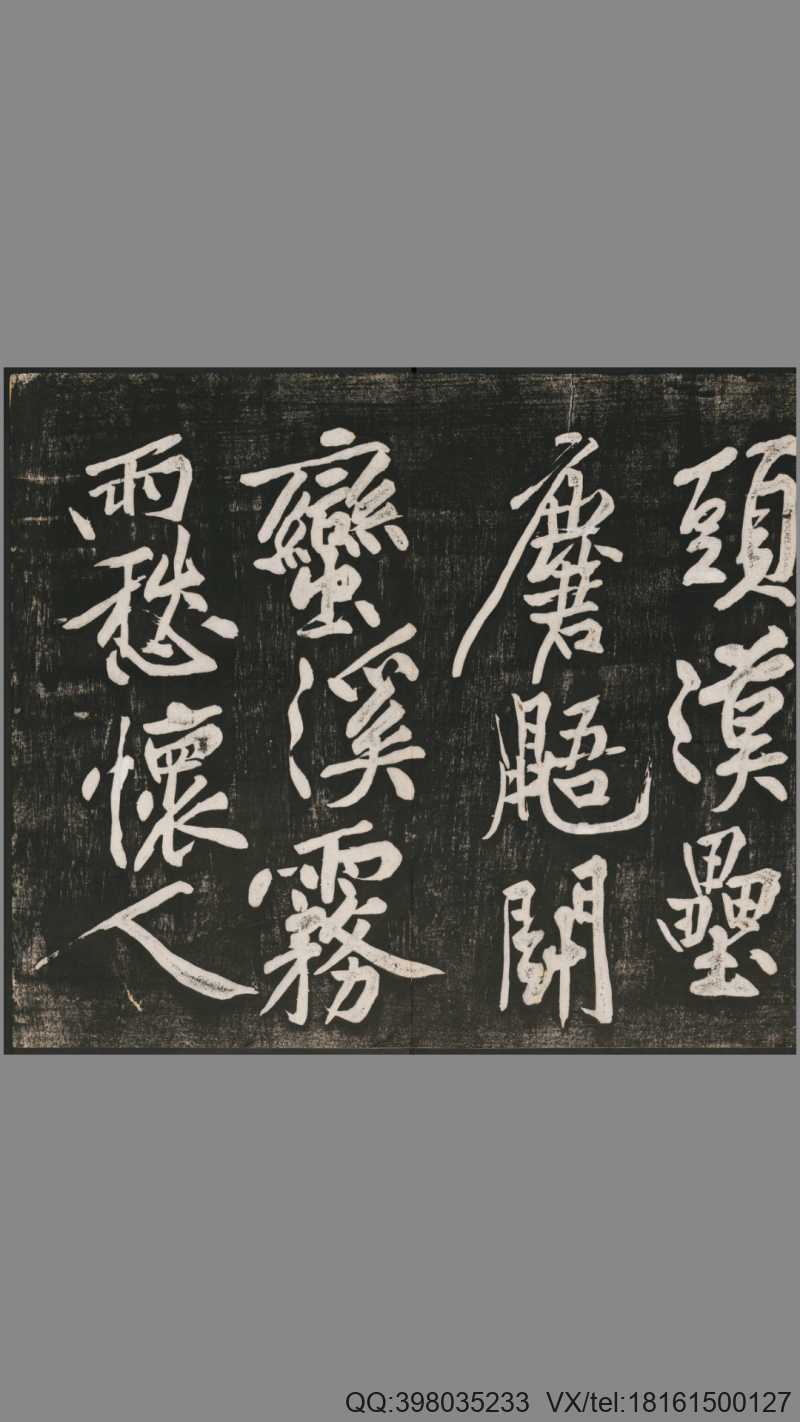 頭漢壘
麏鼯鬥
蠻溪霧
雨愁懷人
QQ:398035233 VX/tel:18161500127